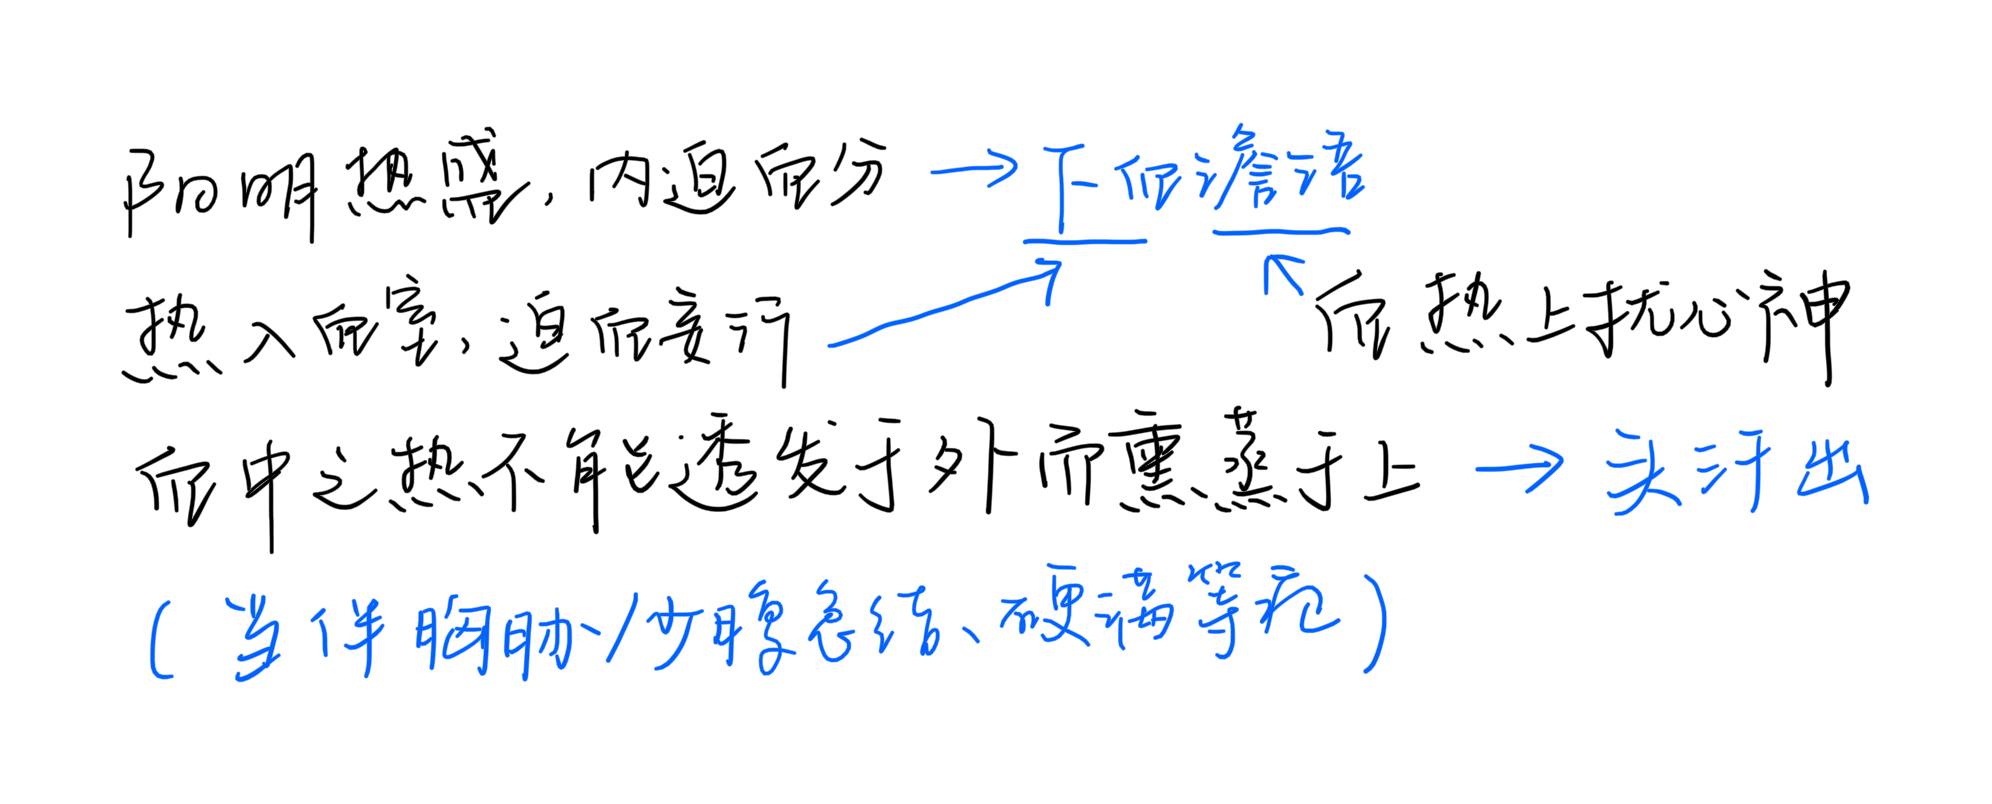 阳明热盛，内迫血分 → 下血谵语
热入血室，迫血妄行
血热上扰心神
血中之热不能透发于外而熏蒸于上 → 头汗出
（当伴胸胁/少腹急结、硬满等症）